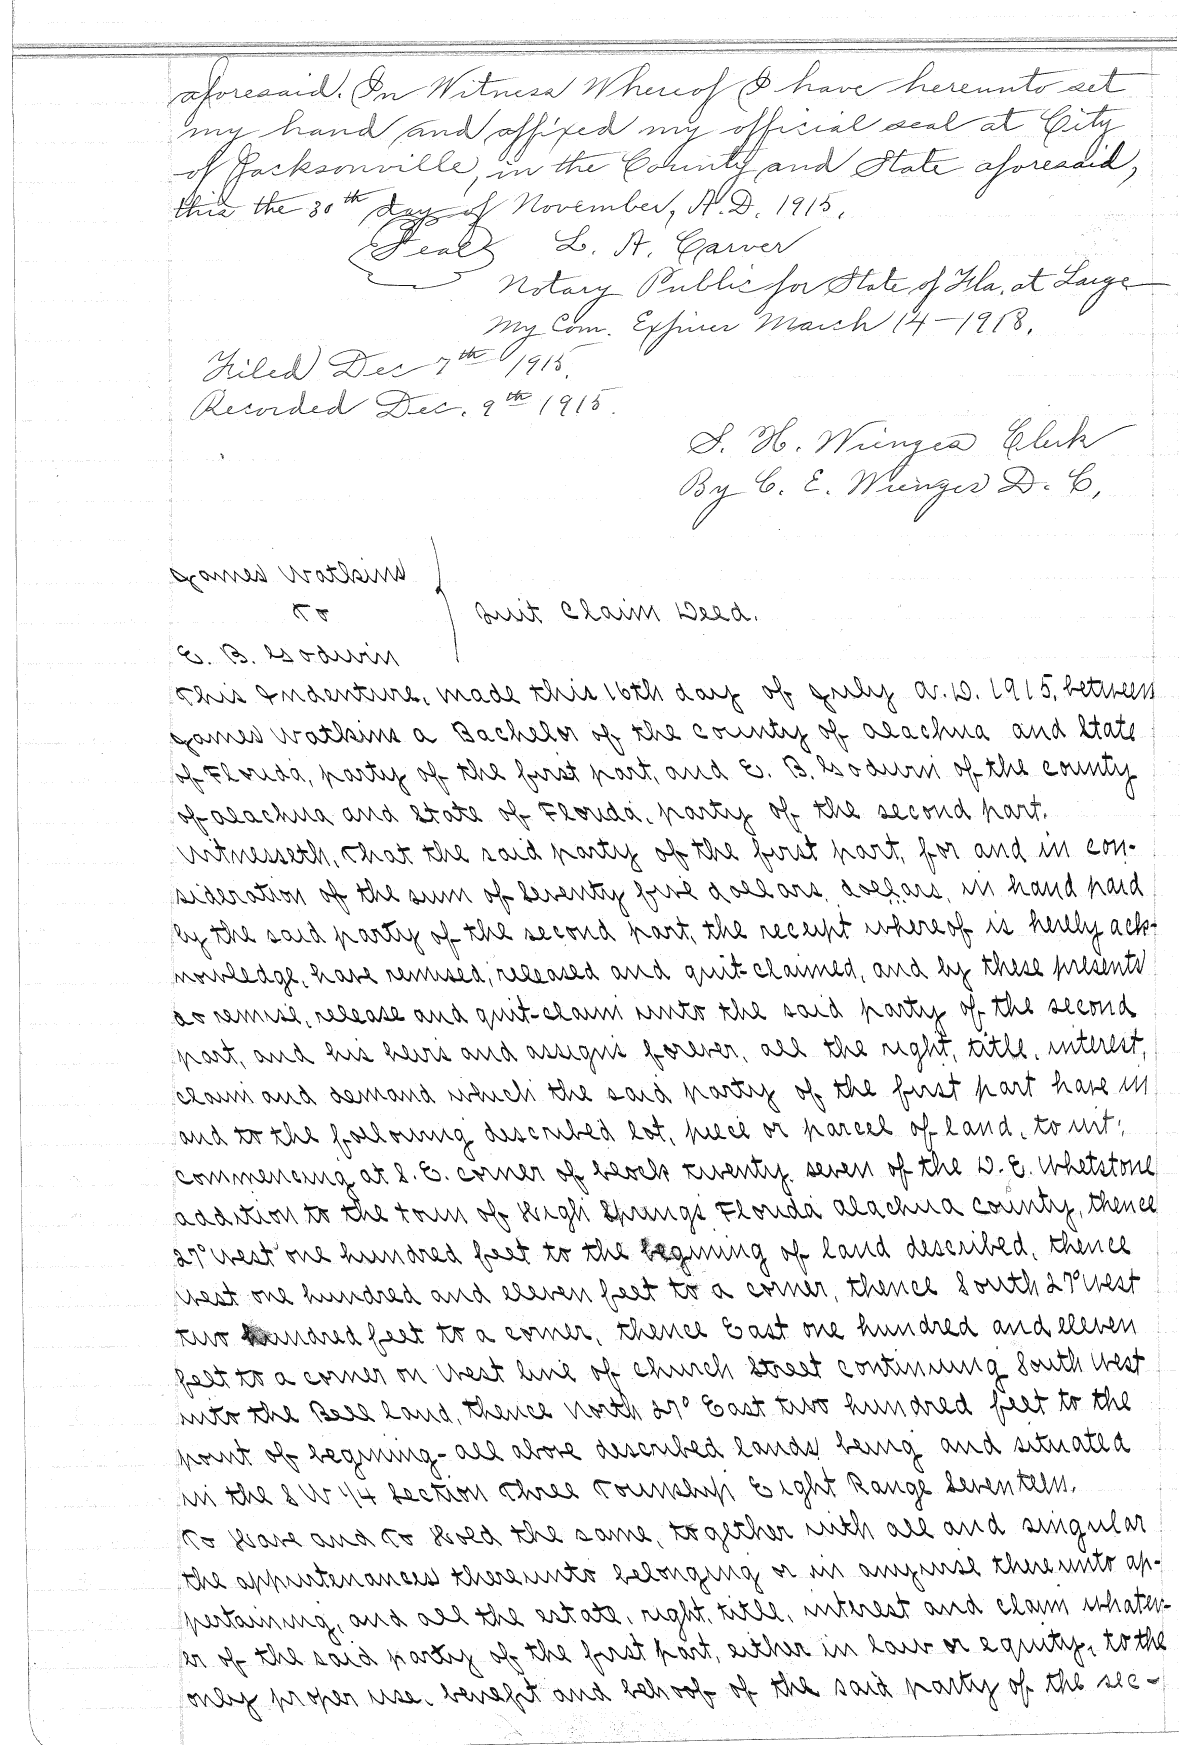 aforesaid. In Witness Whereof I have hereunto set
my hand and affixed my official seal at City
of Jacksonville, in the County and State aforesaid,
this the 30th day of November, A.D. 1915.
Seal L. A. Carver
Notary Public for State of Fla. at Large
My Com. Expires March 14-1918.
Filed Dec 7th 1915.
Recorded Dec. 9th 1915.
S. H. Wienges Clerk
By C. E. Wienges D. C.
James Watkins
To
Quit Claim Deed.
E. B. Godwin
This Indenture, made this 16th day of July A.D. 1915, between
James Watkins a Bachelor of the county of Alachua and State
of Florida, party of the first part, and E. B. Godwin of the county
of Alachua and State of Florida, party of the second part.
Witnesseth, That the said party of the first part, for and in con-
sideration of the sum of Seventy five dollars, dollars, in hand paid
by the said party of the second part, the receipt whereof is hereby ack-
nowledge, have remised, released and quit-claimed, and by these presents
do remise, release and quit-claim unto the said party of the second
part, and his heirs and assigns forever, all the right, title, interest,
claim and demand which the said party of the first part have in
and to the following described lot, piece or parcel of land, to wit:
Commencing at S. E. corner of block twenty seven of the D. E. Whetstone
addition to the town of High Springs Florida Alachua county, thence
27° West one hundred feet to the begining of land described, thence
West one hundred and eleven feet to a corner, thence South 27° West
two hundred feet to a corner, thence East one hundred and eleven
feet to a corner on West line of Church Street continuing South West
into the Bell land, thence North 27° East two hundred feet to the
point of begining- all above described lands being and situated
in the S W 1/4 Section Three Township Eight Range Seventeen.
To Have and To Hold the same, together with all and singular
the appurtenances thereunto belonging or in anywise thereunto ap-
pertaining, and all the estate, right, title, interest and claim whatev-
er of the said party of the first part, either in law or equity, to the
only proper use, benefit and behoof of the said party of the sec-